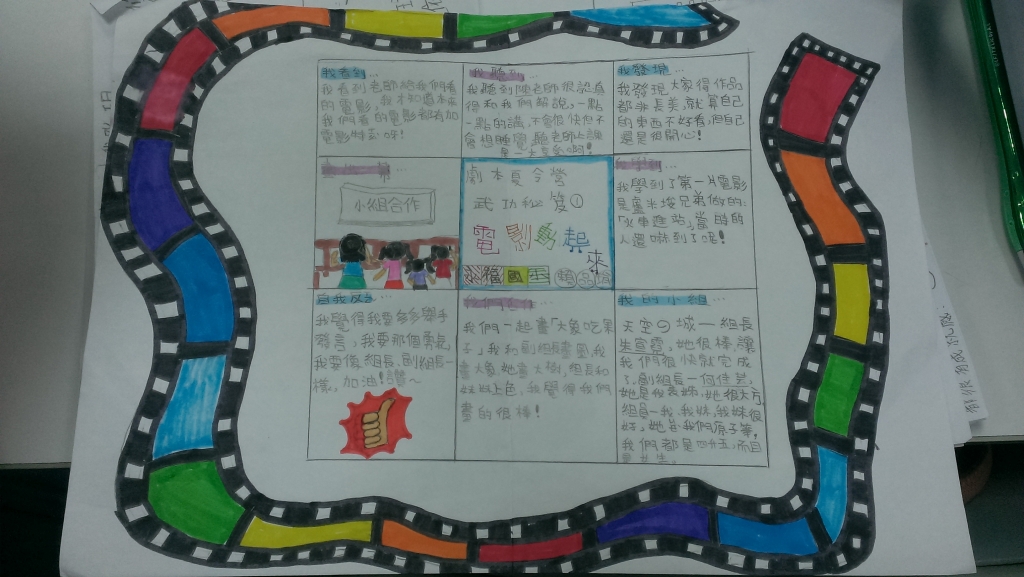 我看到…
我看到老師給我們看
的電影，我才知道本來
我們看的電影都有加
電影特效呀!
我聽到…
我聽到陳老師很認真
得和我們解說，一點
一點的講，不會很快也不
會想睡覺，聽老師上課
我發現…
我發現大家得作品
都非長美，就算自己
的東西不好看，但自己
還是很開心!
小組合作
劇本夏令營
武功秘笈①
電影動起
來
我學到…
我學到了第一片電影
是盧米埃兄弟做的:
「火車進站」當時的
人還嚇到了呢!
自我反省…
我覺得我要多多舉手
發言，我要那個勇氣
我要像組長、副組長一
樣，加油!讚~
我們一起畫「大象吃果
子」我和副組長畫圖，我
畫大象她畫大樹，組長和
妹妹上色，我覺得我們
畫的很棒!
我的小組…
天空の城—組長
生宣霓，她很棒，讓
我們很快就完成
了，副組長—何佳芸，
她是我表姊，她很大方
組員—我、我妹，我妹很
好，她是我們原子筆，
我們都是四升五，而且